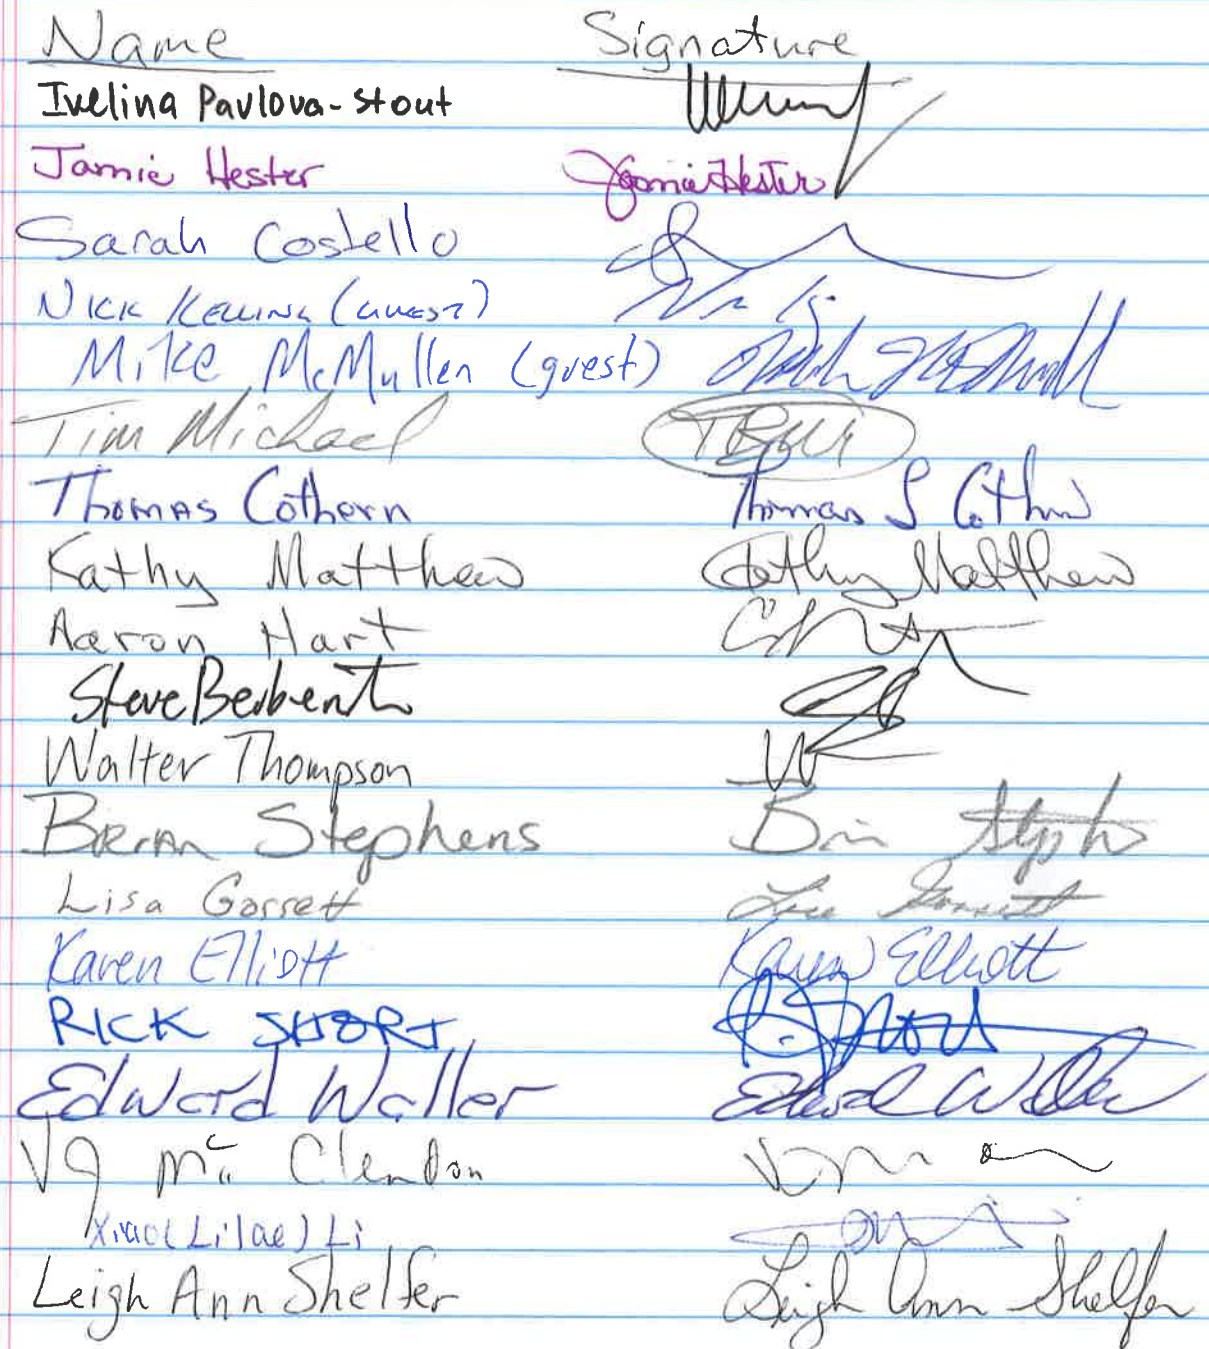 Name Signature
Ivelina Pavlova-Stout
Jamie Hester Jamie Hester
Sarah Costello
Nick Kelling (guest)
Mike McMullen (guest)
Tim Michael
Thomas Cothern Thomas S Cothern
Kathy Matthew Kathy Matthew
Aaron Hart
Steve
Walter Thompson
Brian Stephens Brian Stephens
Lisa Gossett Lisa Gossett
Karen Elliott Karen Elliott
RICK SHORT R. Short
Edward Waller Edward Waller
VJ McClendon
Li
Leigh Ann Shelfer Leigh Ann Shelfer